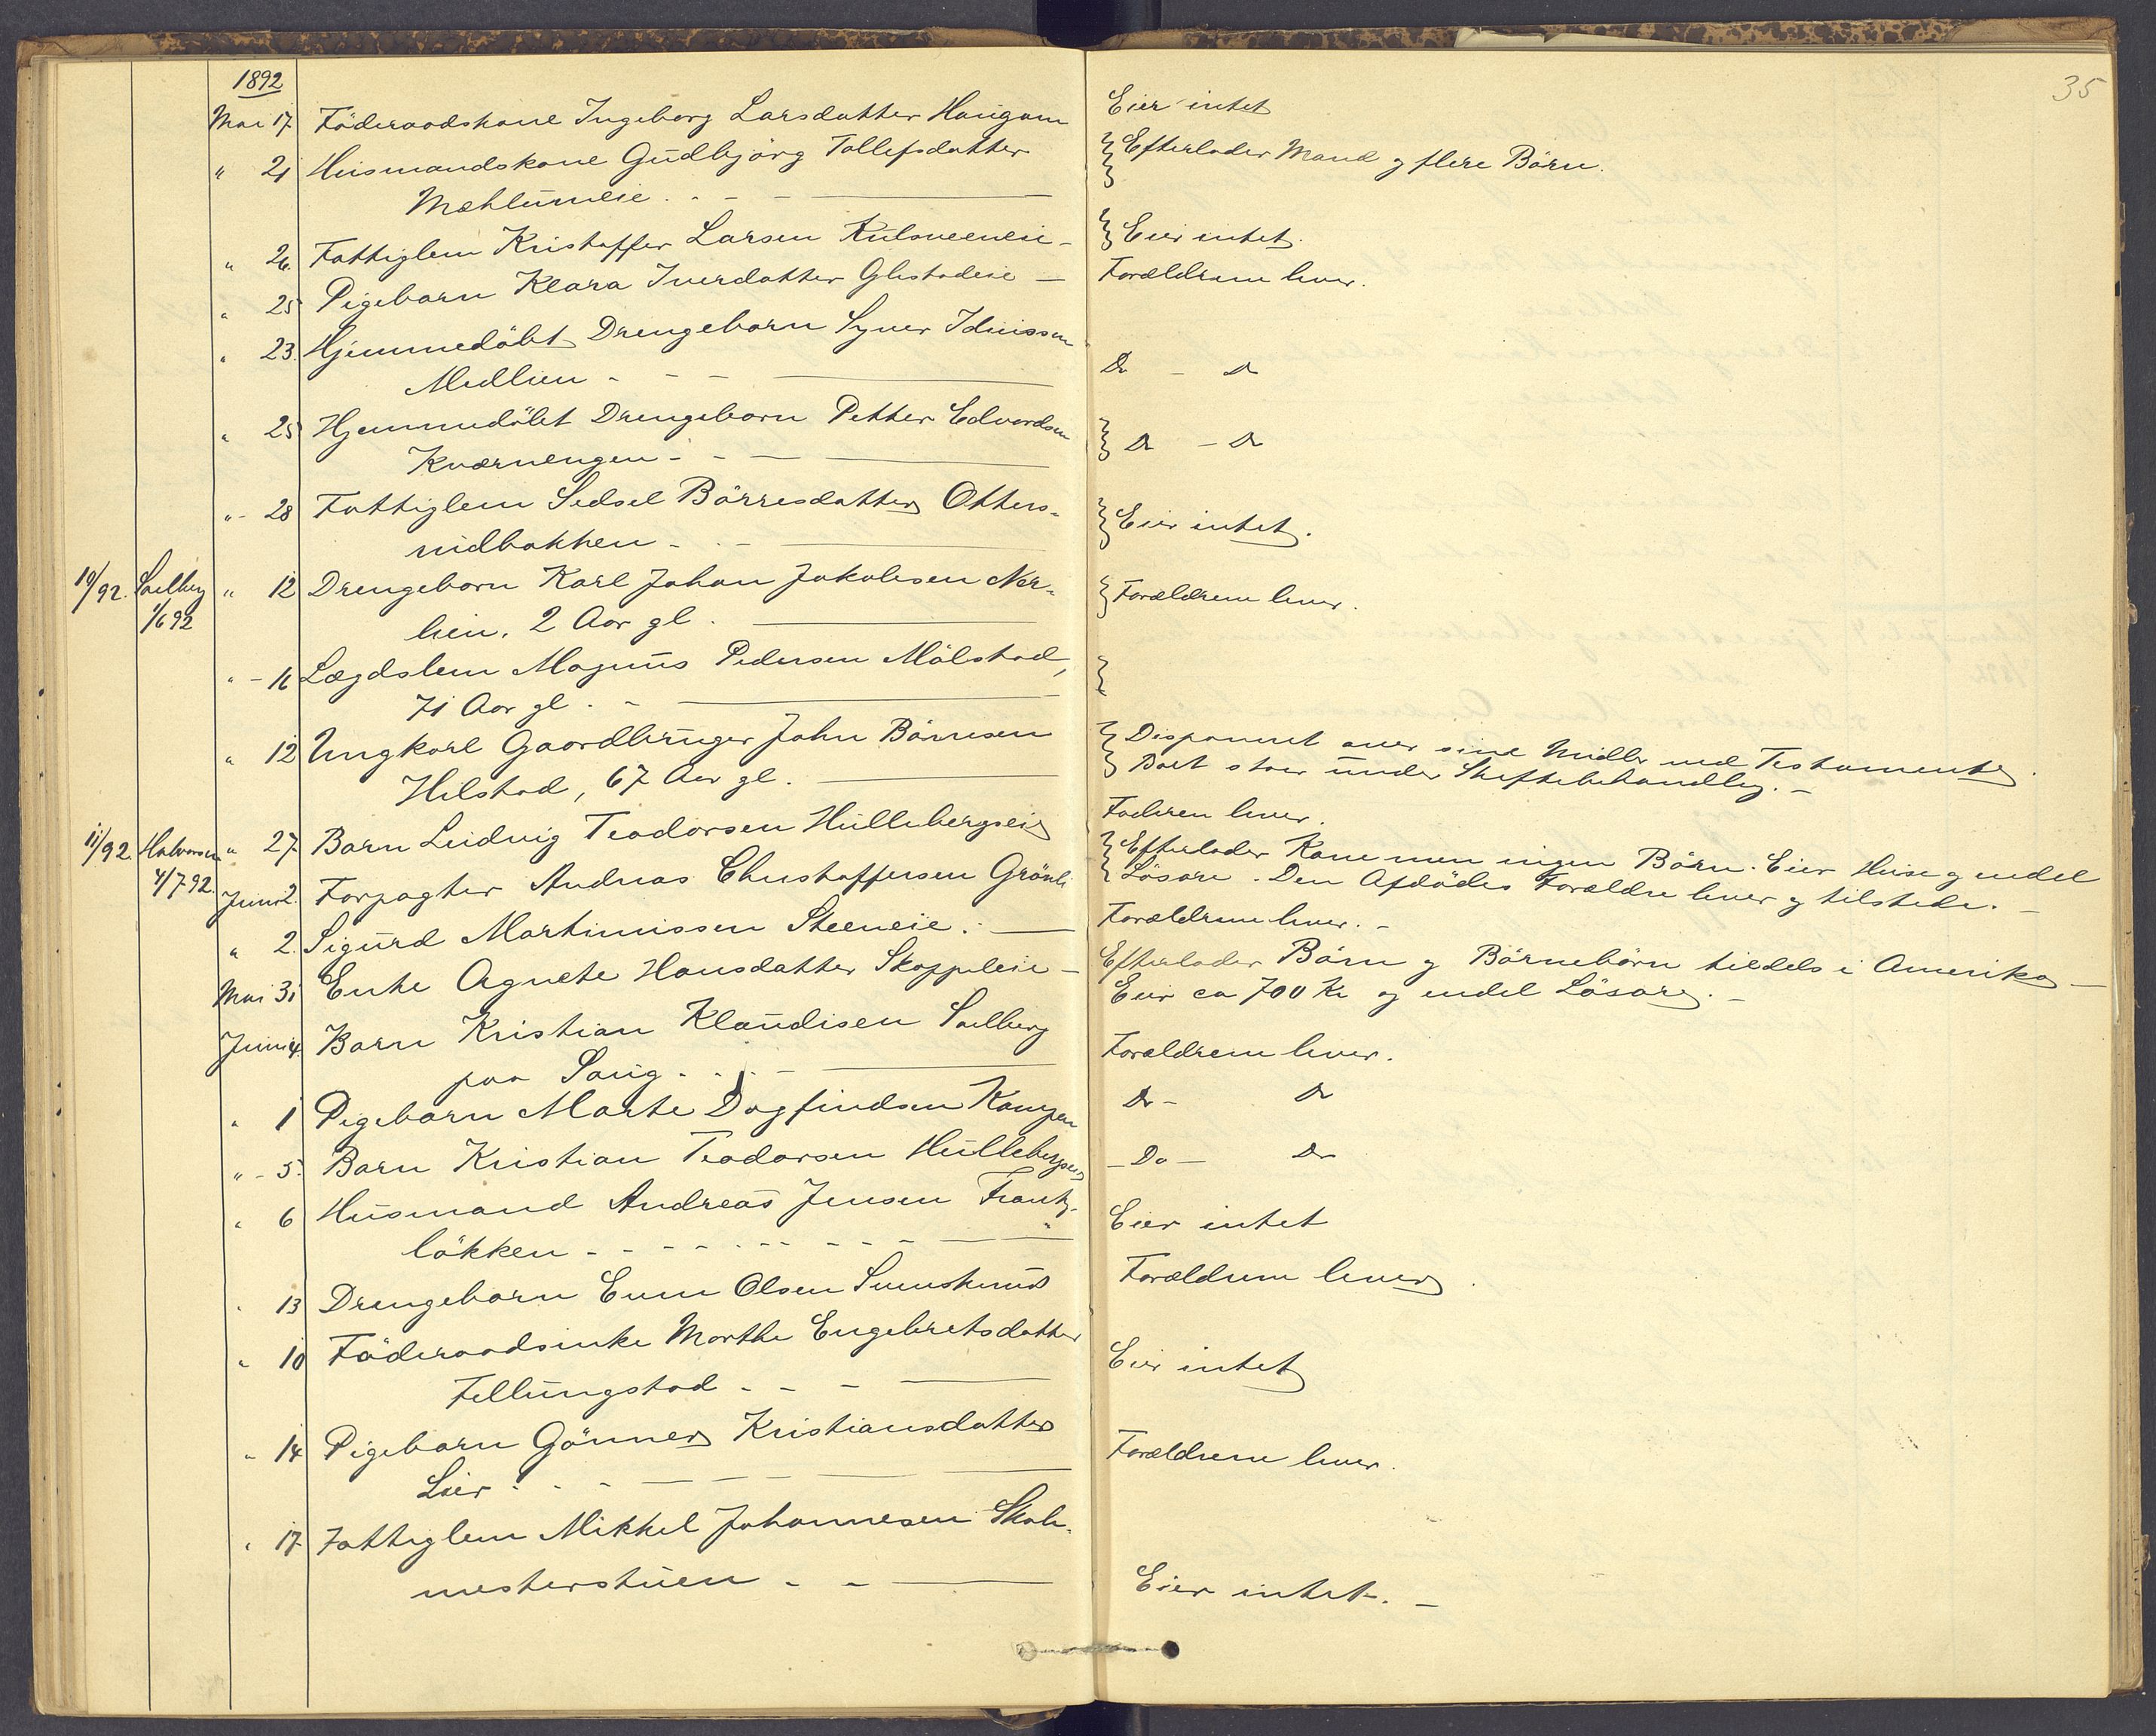 35
1892
Mai 17. Föderaadskone Ingeborg Larsdatter Haugom Eier intet
" 21 Husmandskone Gudbjörg Tollefsdatter Efterlader Mand og flere Börn.
Mæhlumeie
" 26. Fattiglem Kristoffer Larsen Eier intet.
" 25 Pigebarn Klara Iverdatter Glestadeie Forældrene lever.
" 23. Hjemmedöbt Drengebarn Syver
Medlien Do - Do
" 25 Hjemmedöbt Drengebarn Petter Edvardsen
Kværnengen Do - Do
" 28 Fattiglem Sedsel Börresdatter Otters-
rudbakken Eier intet.
10/92. Solberg " 12 Drengebarn Karl Johan Jakobsen Nor- Forældrene lever.
1/6 92 lien. 2 Aar gl.
" 16 Lægdslem Magnus Pedersen Mölstad,
71 Aar gl.
" 12 Ungkarl Gaardbruger John Börresen Disponeret over sine Midler med Testamente.
Hilstad, 67 Aar gl. Boet staar under Skiftebehandling.
11/92. Halvorsen " 27. Barn Ludvig Teodorsen Hullebergseie Faderen lever.
4/7 92. Juni 2. Forpagter Andreas Christoffersen Grönli Efterlader Kone men ingen Börn. Eier Huse og endel
Lösöre. Den Afdödes Forældre lever og tilstede.
" 2. Sigurd Martinussen Steeneie. Forældrene lever.
Mai 31 Enke Agnete Hansdatter Skoppeleie Efterlader Börn og Börnebörn tildels i Amerika
Eier ca 700 Kr og endel Lösöre.
Juni 4. Barn Kristian Klaudisen Solberg Forældrene lever.
paa Saug.
" 1 Pigebarn Marte Dagfindsen Kampen Do - Do
" 5. Barn Kristian Teodorsen Hullebergseie - Do - Do
" 6 Husmand Andreas Jensen Frantz- Eier intet
lökken
" 13 Drengebarn Even Olsen Forældrene lever.
" 10 Föderaadsenke Marthe Engebretsdatter Eier intet
Fellungstad
" 14 Pigebarn Gönner Kristiansdatter Forældrene lever.
Lier
" 17. Fattiglem Mikkel Johannesen Skole-
mesterstuen Eier intet.